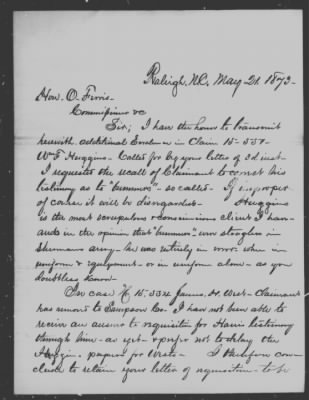 Raleigh, N.C. May 21. 1873-
Hon. O. Ferris-
Commissioner &c
Sir; I have the honor to transmit
herewith additional Evidence in Claim 15-557-
Wm F. Huggins- Called for by your letter of 3d inst-
I requested the recall of Claimant to correct his
testimony as to "bummers"- so called- If improper
of course it will be disregarded- Huggins
is the most scrupulous & conscientious client I have
and in the opinion that "bummers" were stragglers in
Shermans army- he was entirely in error- when in
uniform & equipment- or in uniform alone- as you
doubtless know-
In case of 15.552 James H. West- Claimant
has removed to Sampson Co. I have not been able to
receive an answer to requisition for testimony
through him- as yet- & prefer not to delay the
Huggins papers for Wests- I therefore con-
clude to retain your letter of requisition to be